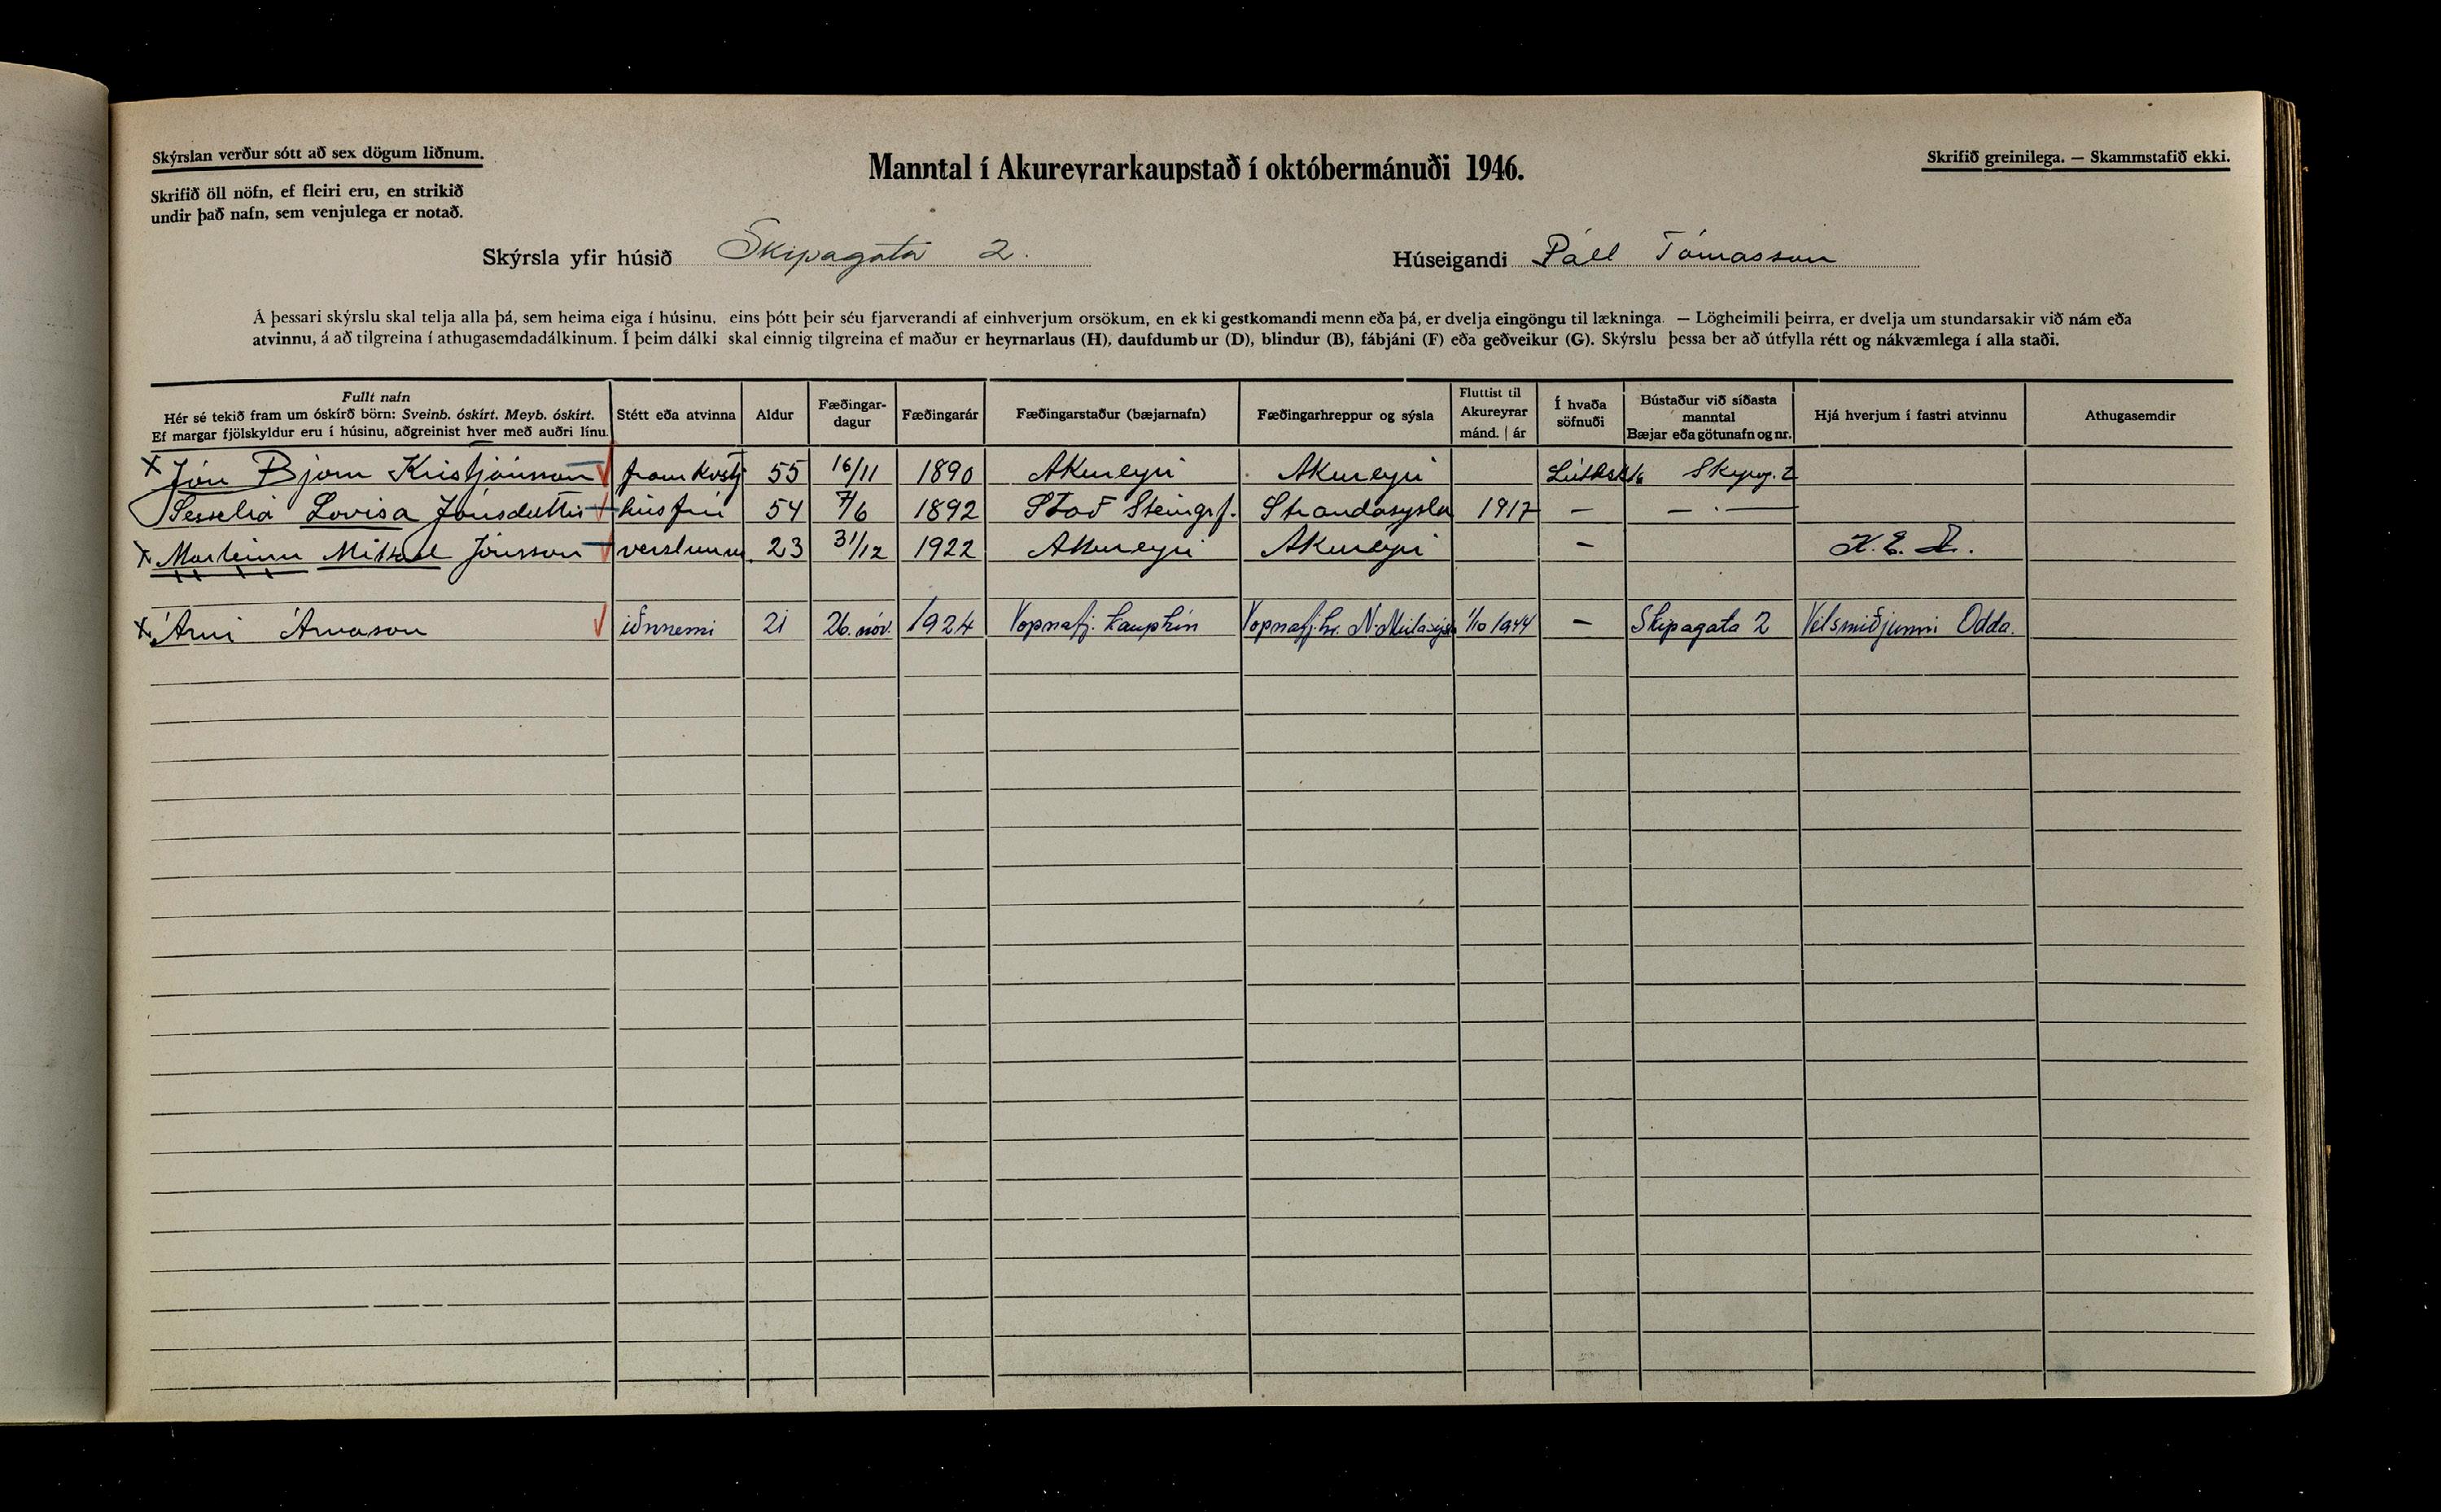 Skýrslan verður sótt að sex dögum liðnum.
Skrifið öll nöfn, ef fleiri eru, en strikið
undir það nafn, sem venjulega er notað.
Manntal í Akureyrarkaupstað í októbermánuði 1946.
Skrifið greinilega. — Skammstafið ekki.
Skýrsla yfir húsið Skipagata 2.
Húseigandi Páll Tómasson
Á þessari skýrslu skal telja alla þá, sem heima eiga í húsinu, eins þótt þeir séu fjarverandi af einhverjum orsökum, en ekki gestkomandi menn eða þá, er dvelja eingöngu til lækninga. — Lögheimili þeirra, er dvelja um stundarsakir við nám eða
atvinnu, á að tilgreina í athugasemdadálkinum. Í þeim dálki skal einnig tilgreina ef maður er heyrnarlaus (H), daufdumbur (D), blindur (B), fábjáni (F) eða geðveikur (G). Skýrslu þessa ber að útfylla rétt og nákvæmlega í alla staði.
Fullt nafn
Hér sé tekið fram um óskírð börn: Sveinb. óskírt. Meyb. óskírt.
Ef margar fjölskyldur eru í húsinu, aðgreinist hver með auðri línu.
Stétt eða atvinna
Aldur
Fæðingar-
dagur
Fæðingarár
Fæðingarstaður (bæjarnafn)
Fæðingarhreppur og sýsla
Fluttist til
Akureyrar
mánd. | ár
Í hvaða
söfnuði
Bústaður við síðasta
manntal
Bæjar eða götunafn og nr.
Hjá hverjum í fastri atvinnu
Athugasemdir
x Jón Björn Kristjánsson framkvstj 55 16/11 1890 Akureyri Akureyri Skipag. 2
Sesselia Lovisa Jónsdóttir húsfrú 54 7/6 1892 Stað Steingrf. Strandasýsla 1917 — — · —
x Marteinn Mikael Jónsson 23 31/12 1922 Akureyri Akureyri — K. E. A.
x Árni Árnason iðnnemi 21 26. nóv. 1924 Vopnafj. kauptún Vopnafj.hr. N-Múlasýsla 1/10 1944 — Skipagata 2 Vélsmiðjunni Odda.